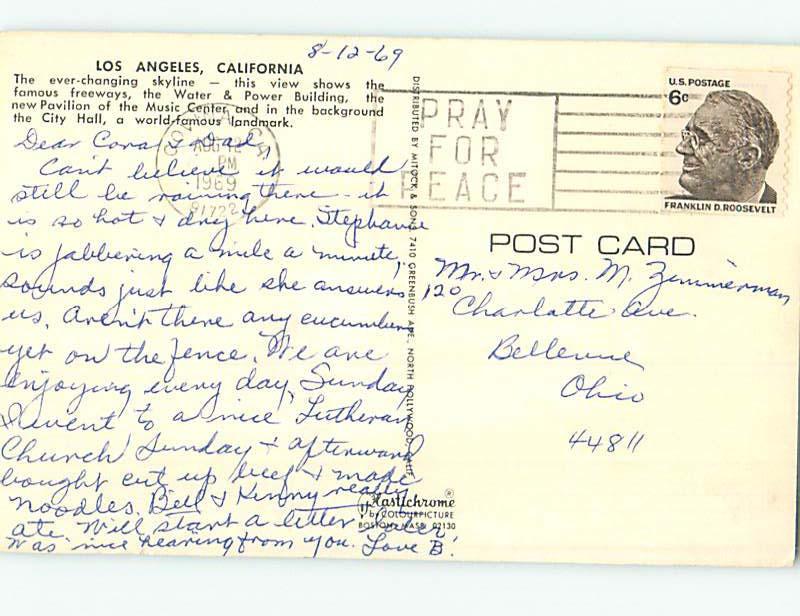 8-12-69
LOS ANGELES, CALIFORNIA
The ever-changing skyline — this view shows the
famous freeways, the Water & Power Building, the
new Pavilion of the Music Center and in the background
the City Hall, a world-famous landmark.
Dear Cora & Dad,
Can't believe it would
still be raining there - it
is so hot & dry here. Stephanie
is jabbering a mile a minute,
sounds just like she answers
us. Aren't there any cucumbers
yet on the fence. We are
enjoying every day, Sunday
I went to a nice Lutheran
Church Sunday & afterward
bought cut up beef & made
noodles. Bill & Kenny really
ate. Will start a letter later
Was nice hearing from you. Love B.
AUG 12
PM
1969
91722
PRAY
FOR
PEACE
U.S. POSTAGE
6¢
FRANKLIN D. ROOSEVELT
DISTRIBUTED BY MITOCK & SONS, 7410 GREENBUSH AVE., NORTH HOLLYWOOD, CALIF.
POST CARD
Mr. & Mrs. M. Zimmerman
120
Charlotte Ave.
Bellevue
Ohio
44811
Plastichrome ®
by COLOURPICTURE
BOSTON, MASS. 02130